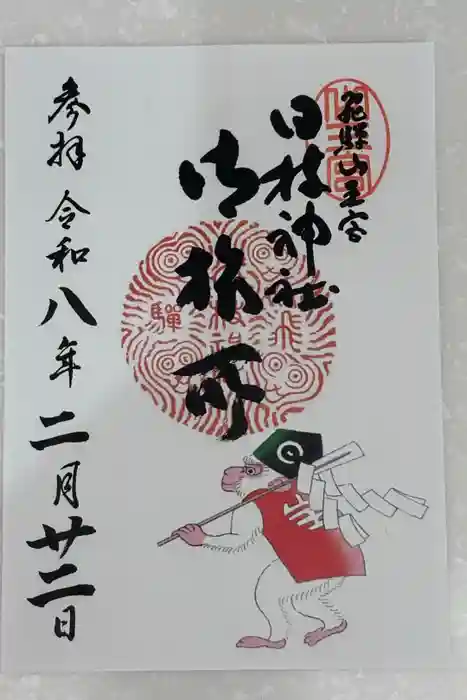 飛騨山王宮
日枝神社
御旅所
飛驒
参拝 令和八年二月廿二日